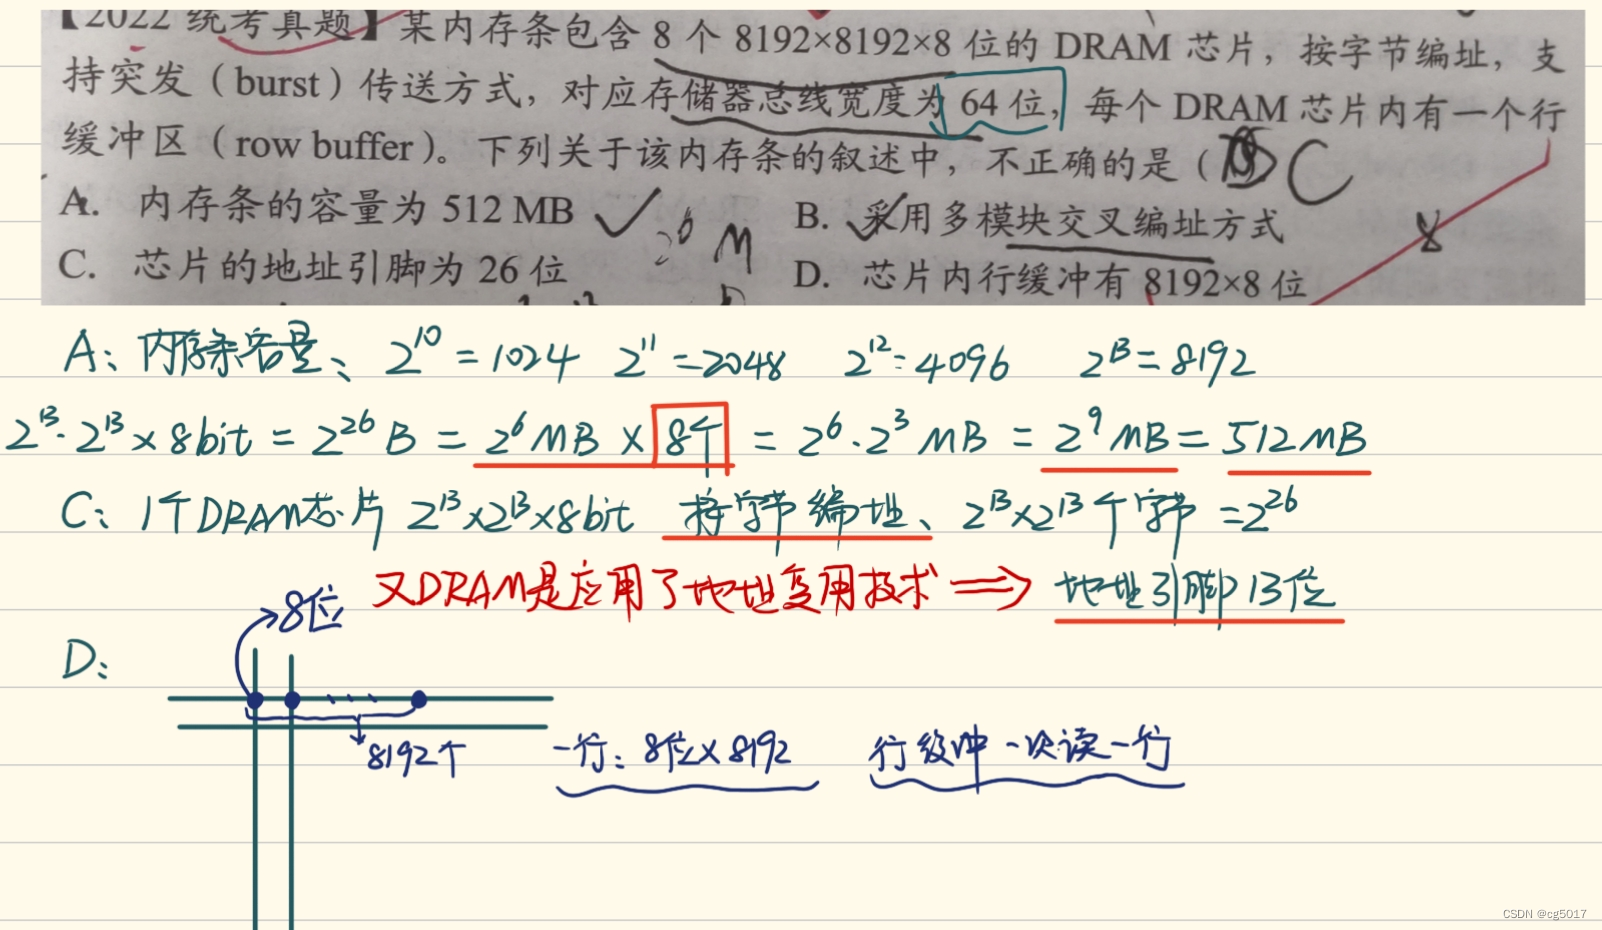 【2022 统考真题】某内存条包含 8 个 8192×8192×8 位的 DRAM 芯片，按字节编址，支
持突发（burst）传送方式，对应存储器总线宽度为 64 位，每个 DRAM 芯片内有一个行
缓冲区（row buffer）。下列关于该内存条的叙述中，不正确的是（ D C
A. 内存条的容量为 512 MB
B. 采用多模块交叉编址方式
2⁶ M
8
C. 芯片的地址引脚为 26 位
D. 芯片内行缓冲有 8192×8 位
A: 内存条容量、 2¹⁰ = 1024 2¹¹ = 2048 2¹² = 4096 2¹³ = 8192
2¹³·2¹³×8bit = 2²⁶ B = 2⁶ MB × 8个 = 2⁶·2³ MB = 2⁹ MB = 512MB
C: 1个DRAM芯片 2¹³×2¹³×8bit 按字节编址、2¹³×2¹³个字节 = 2²⁶
又DRAM是应用了地址复用技术 ⟹ 地址引脚13位
8位
D:
8192个
一行: 8位×8192 行缓冲一次读一行
CSDN @cg5017